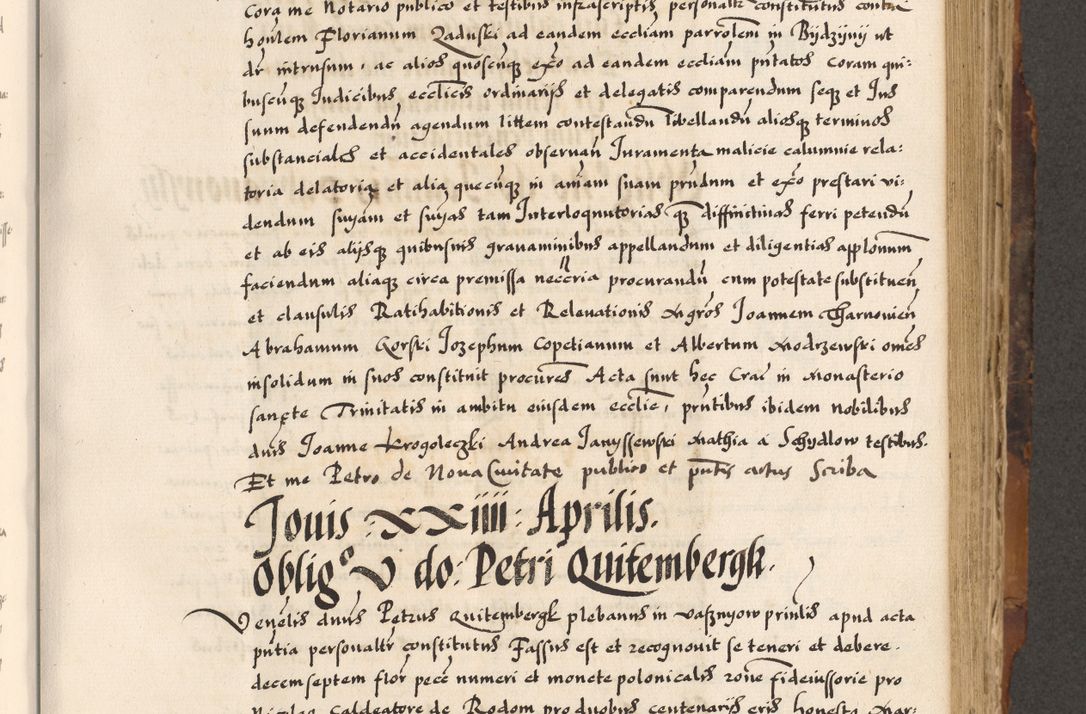 Cora me Notario publico et testibus infrascriptis personalr constitutus contra
honlem Florianum Zaduski ad eandem eccliam parrolem in Bijdzijnij ut
dr intrusum, ac alios quoscunqz exo ad eandem eccliam pntatos Coram qui-
buscuqz Judicibus eccliicis ordinarijs et delegatis comparendum seqz et Jus
suum defendendu agendum littem contestandu libellandu aliosqz terminos
substanciales et accidentales observan Juramenta malicie calumnie rela-
toria delatoria et alia quecuqz in aniam suam prudnm et exo prestari vi-
dendum suyam et suyas tam Interloqutorias qz diffinitivas ferri petendu
et ab eis alijsqz quibusuis gravaminibus appellandum et diligentias applonum
faciendum aliaqz circa premissa neccria procurandu cum potestate substituen
et clausulis Ratihabitionis et Relevationis Mgros Joannem Tharnovien
Abrahamum Gorski Jozephum Copetianum et Albertum Modrzewski omes
insolidum in suos constituit procures Acta sunt hec Crac in Monasterio
sancte Trinitatis in ambitu eiusdem ecclie, pntibus ibidem Nobilibus
dnis Joanne Krogoleczki Andrea Janyssewski Mathia a Schydlow testibus.
Et me Petro de Nova Civitate publico et pntis actus Scriba
Jovis : XXiiii : Aprilis.
Oblig° V do: Petri Quitembergk.
Venelis dnus Petrus Quitembergk plebanus in Vasznyow printis apud acta
pntia personaltr constitutus Fassus est et recognovit se teneri et debere
decemseptem flor pecc numeri et monete polonicalis rone fideiussorie pro
Nicolao Caldeatore de Radom pro duobus centenarijs eris honesta Mar-